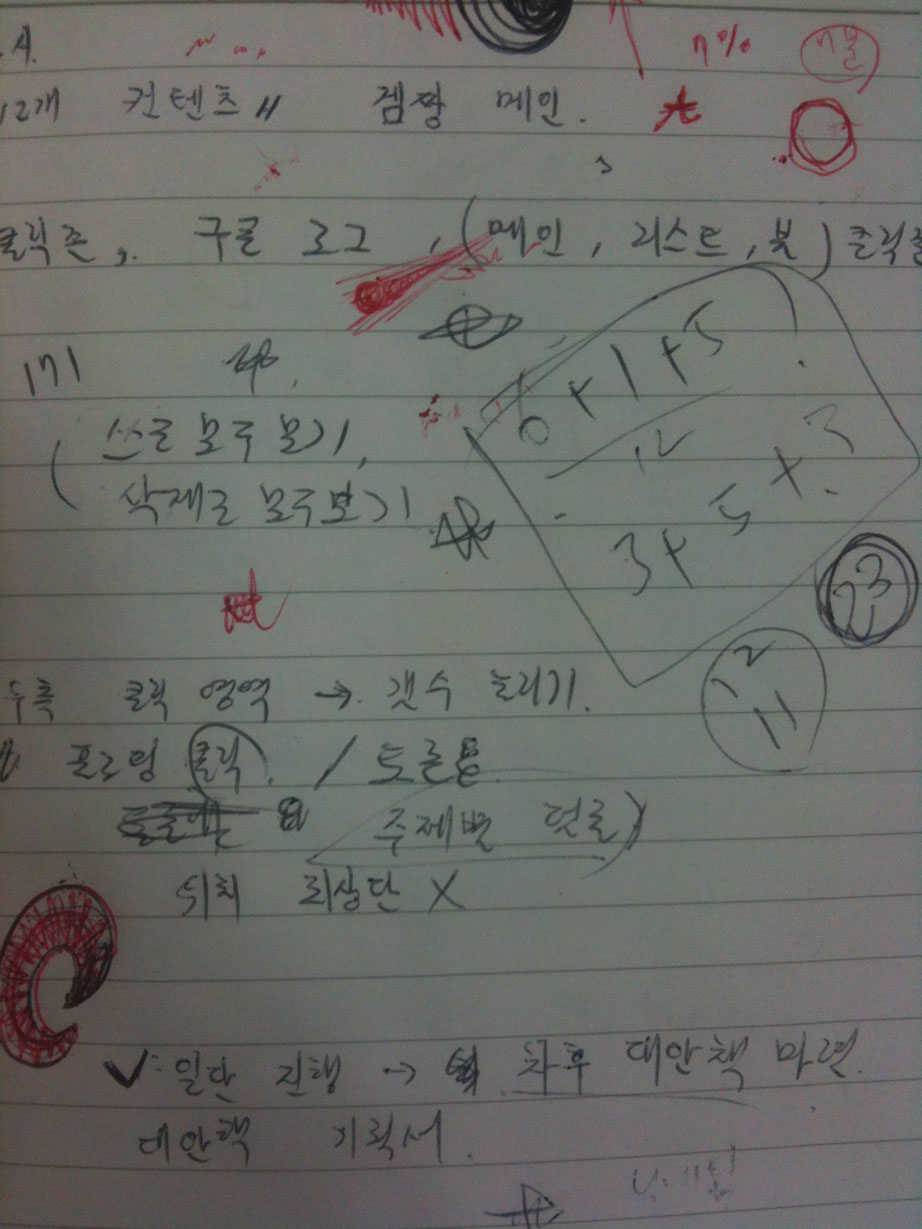 .A.
7% 7분
12개 컨텐츠 〃 겜짱 메인.
클릭존, 구글 로그, (메인, 리스트, 봇) 클릭률
171
쓰근 모두 보기,
삭제근 모두보기
0+1+5
12
3+5+3
23
12
11
우측 클릭 영역 → 갯수 늘리기.
프로필 클릭. / 토론글
주제별 덧글)
위치 최상단 X
✓: 일단 진행 → 차후 대안책 마련.
대안책 기획서.